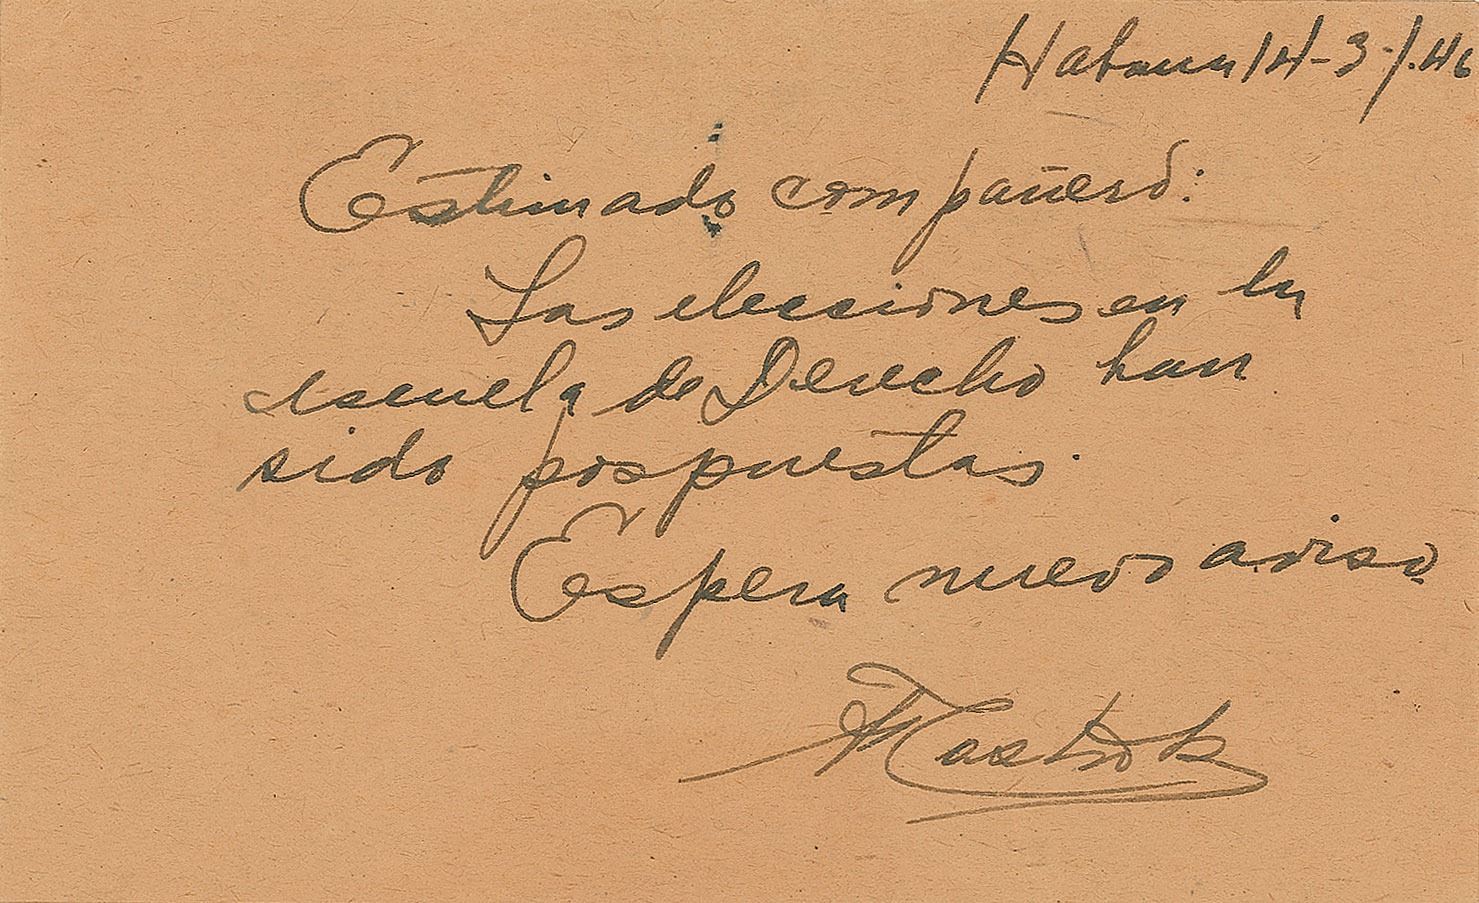 Habana 14-3-/.46
Estimado compañero:
Las elecciones en la
escuela de Derecho han
sido pospuestas.
Espera nuevo aviso
F Castro R